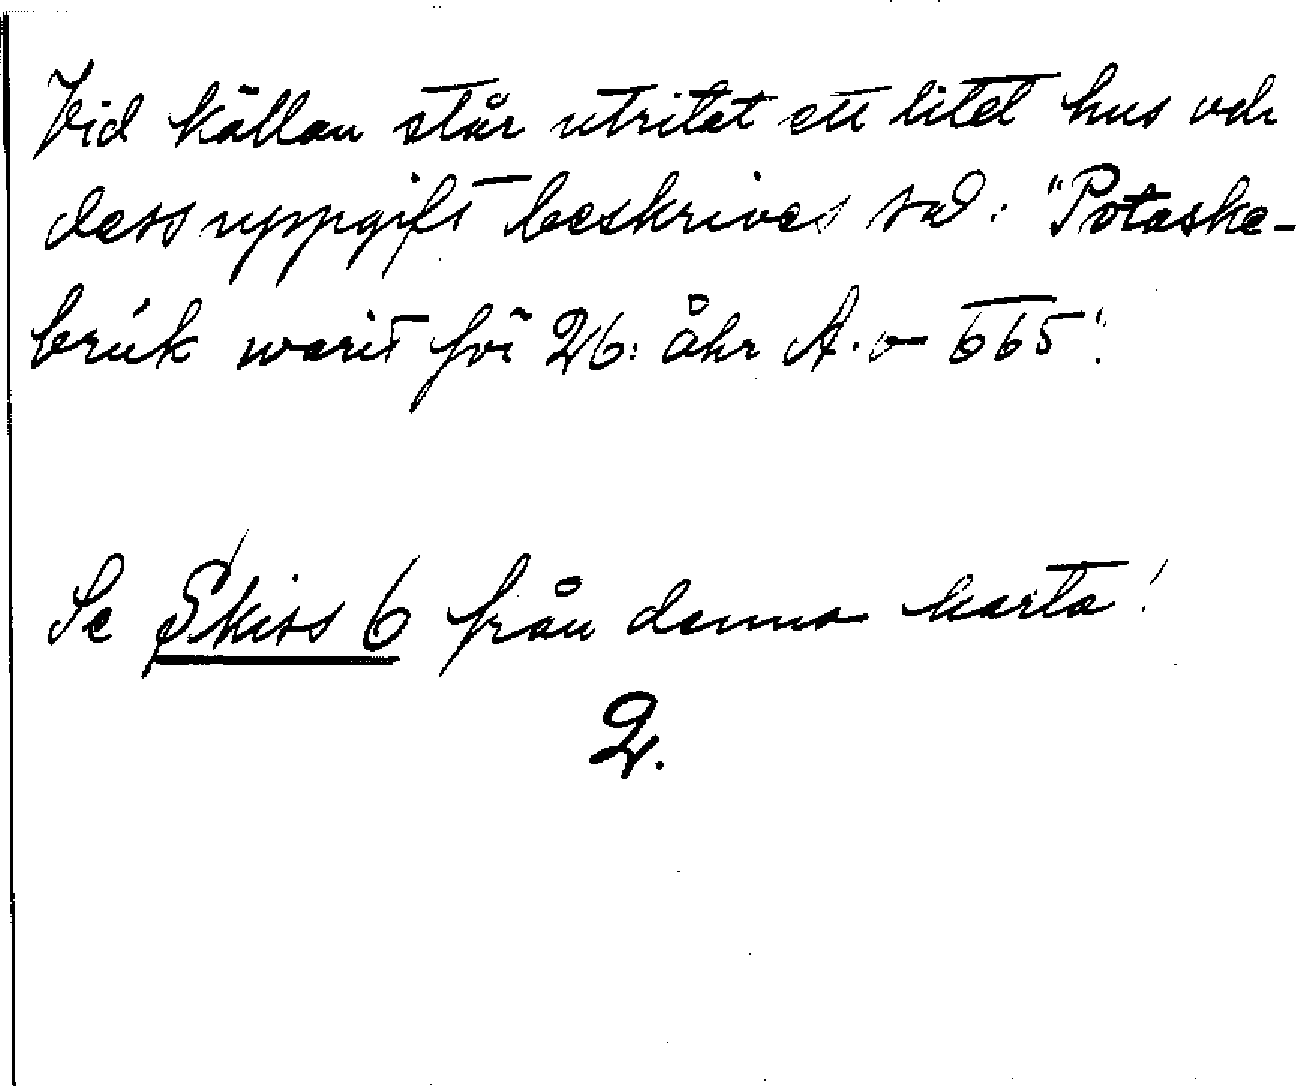 Vid källan står utritat ett litet hus och
dess uppgift beskrives så: "Potaske-
brúk warit för 26: åhr A. o 665".
Se Skiss 6 från denna karta!
2.